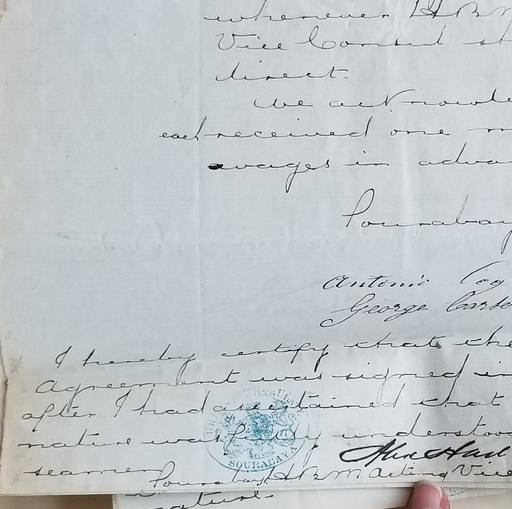 whenever H B M
Vice Consul sh
direct.
We acknowle
each received one m
wages in adva
Sourabay
Antonio
George Carte
I hereby certify that the
Agreement was signed in
after I had ascertained that
nature was fully understood
seamen
Sourabay H B M Acting Vice
SOURABAYA
nature.